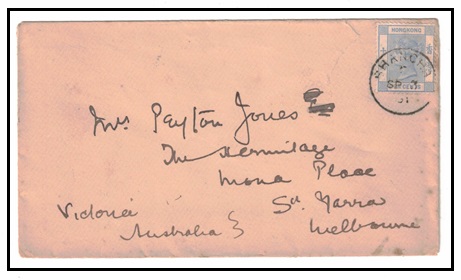 HONGKONG
SHANGHAI
SP
Mrs Peyton Jones
The Hermitage
Mona Place
Sth Yarra
Melbourne
Victoria
Australia